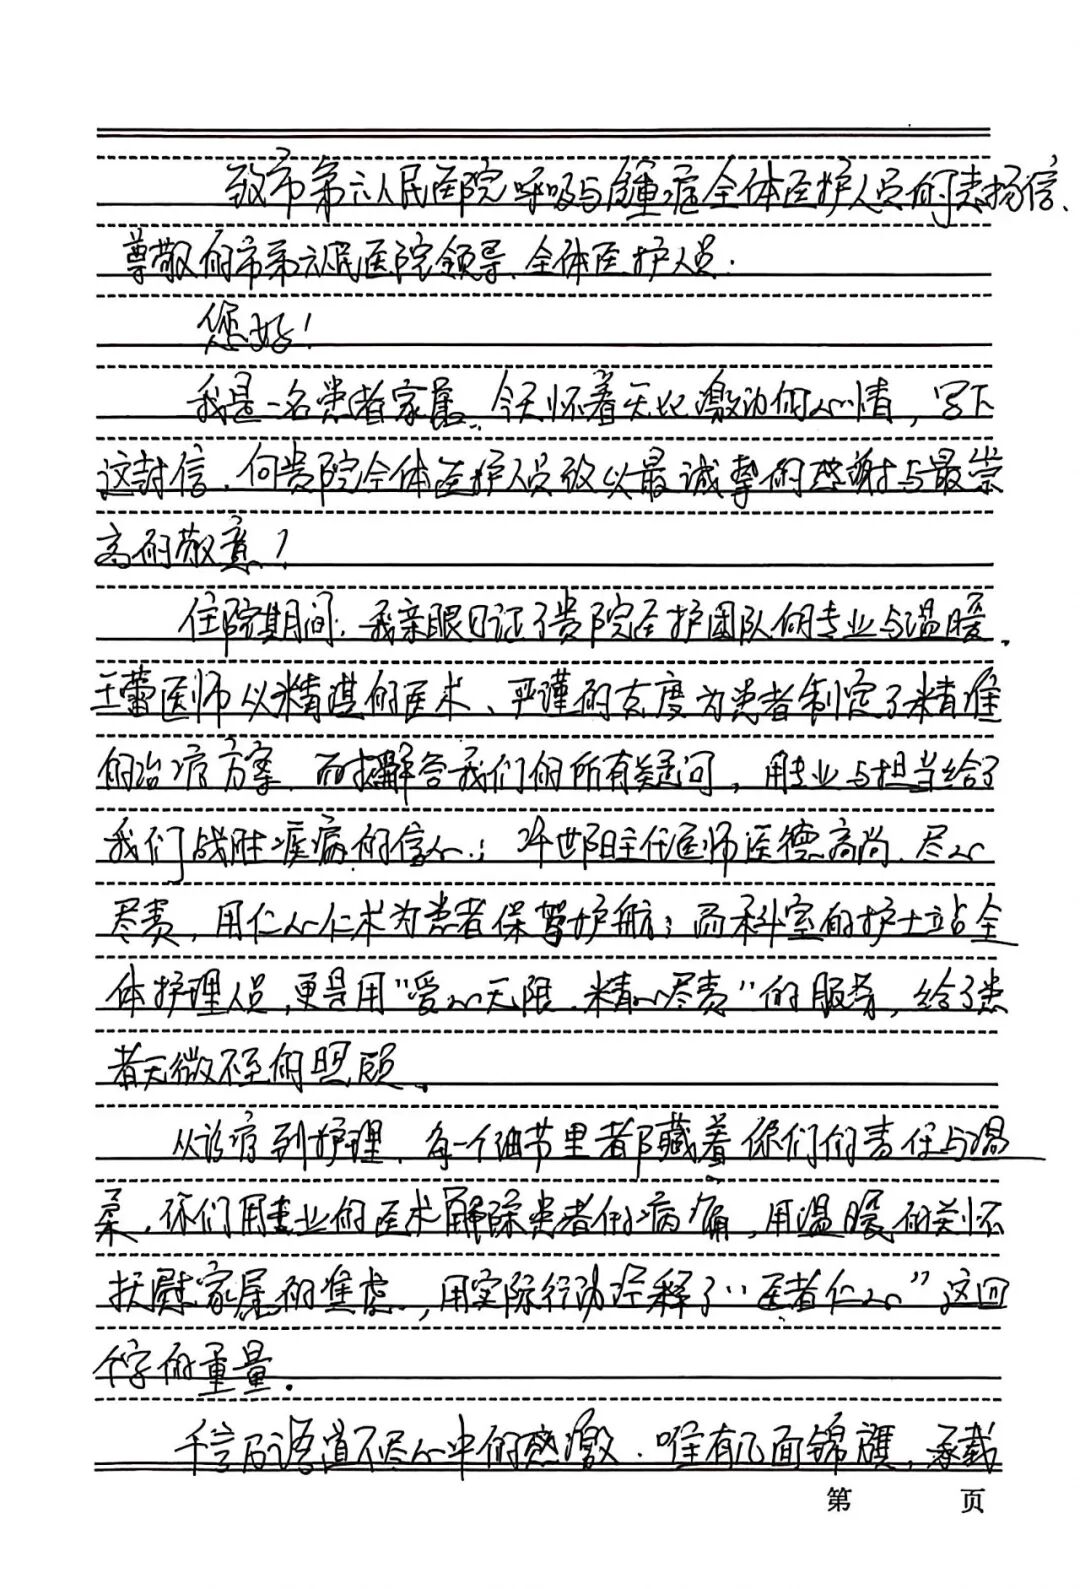 致市第六人民医院呼吸与肿瘤全体医护人员的表扬信、
尊敬的市第六人民医院领导、全体医护人员：
您好！
我是一名患者家属、今天怀着无比激动的心情，写下
这封信，向贵院全体医护人员致以最诚挚的感谢与最崇
高的敬意！
住院期间，我亲眼目证了贵院医护团队的专业与温暖。
王蕾医师以精湛的医术、严谨的态度为患者制定了精准
的治疗方案、而我解答我们的所有疑问，用专业与担当给了
我们战胜疾病的信心；世阳主任医师医德高尚、尽心
尽责，用仁心仁术为患者保驾护航；而科室的护士站全
体护理人员，更是用“爱心无限、精心尽责”的服务，给了患
者无微不至的照顾。
从诊疗到护理，每一个细节里都藏着你们的责任与温
柔，你们用专业的医术解除患者的病痛，用温暖的关怀
抚慰家属的焦虑，用实际行动诠释了“医者仁心”这四
个字的重量。
千言万语道不尽心中的感激，唯有几面锦旗，承载
第 页